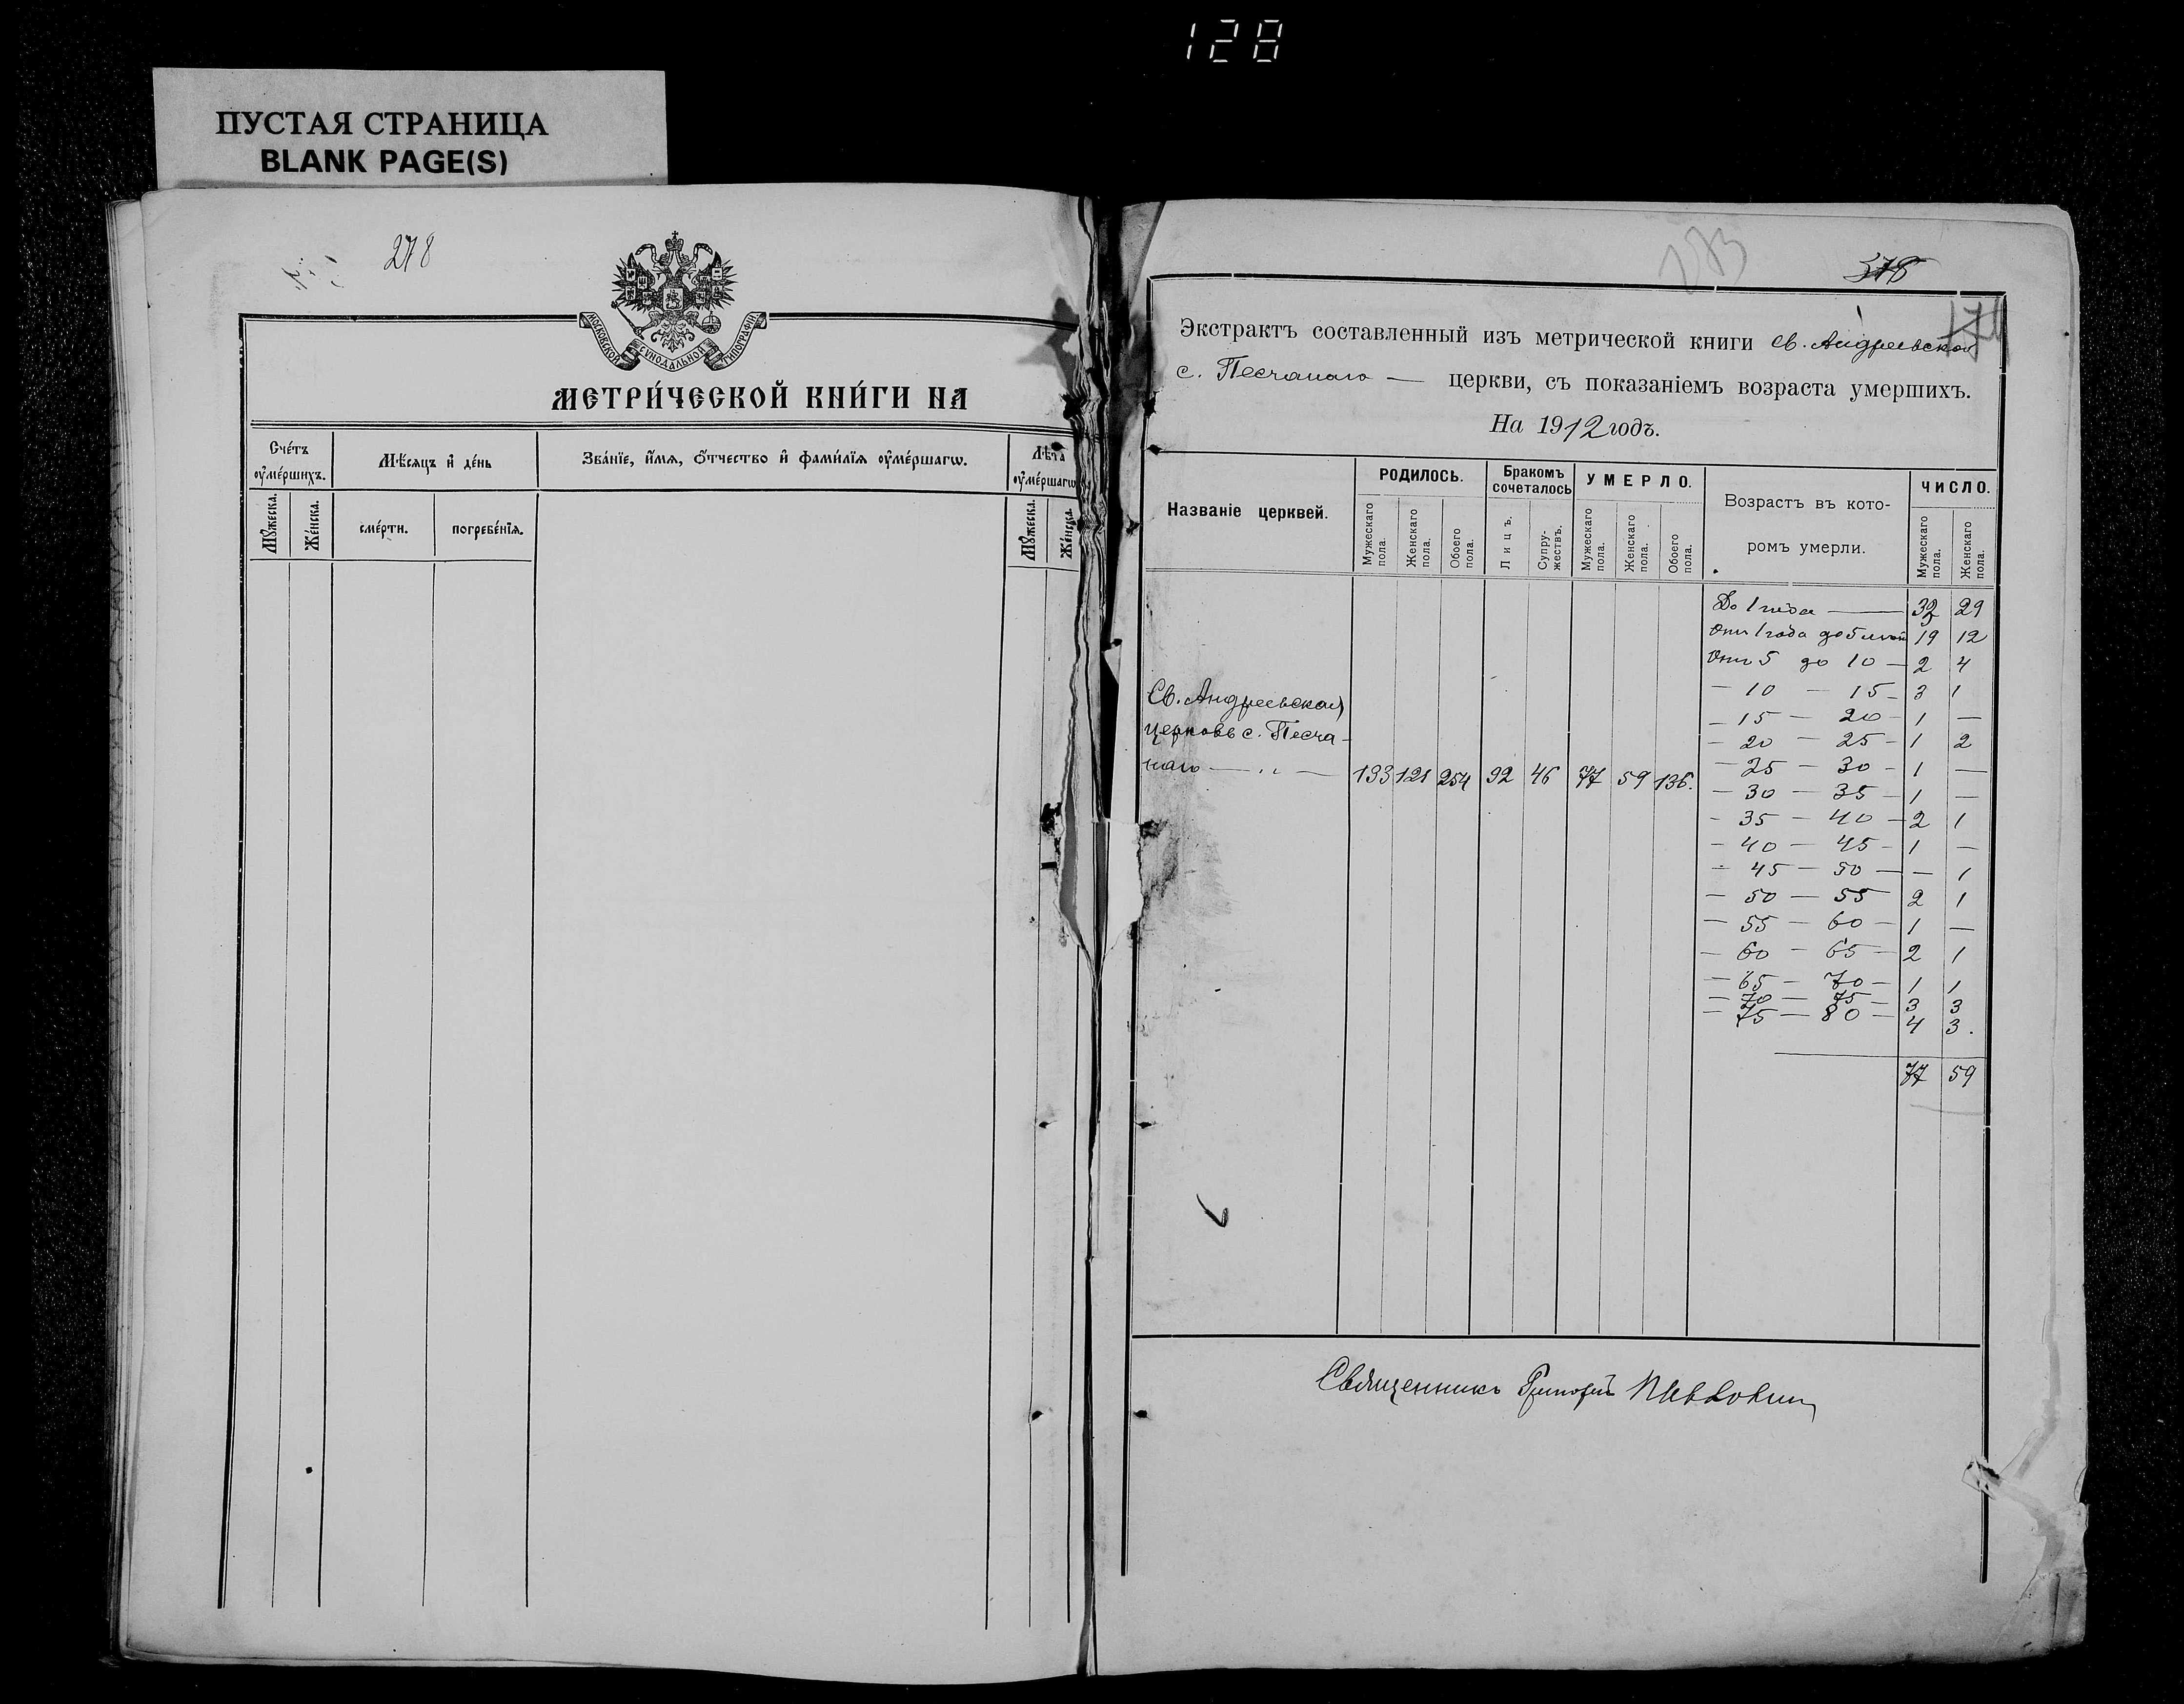 128
ПУСТАЯ СТРАНИЦА
BLANK PAGE(S)
278
МОСКОВСКОЙ СѴНОДАЛЬНОЙ ТИПОГРАФІИ
МЕТРИ́ЧЕСКОЙ КНИ́ГИ НА
Сче́тъ оу҆ме́ршихъ.
Мѣ́сяцъ и҆ де́нь
Зва́нїе, и҆́мя, ѻ҆́тчество и҆ фами́лїя оу҆ме́ршагѡ.
Лѣ́та оу҆ме́ршагѡ
Мꙋ́жеска.
Же́нска.
сме́рти.
погребе́нїѧ.
Мꙋ́жеска.
Же́нска.
378
Экстрактъ составленный изъ метрической книги св. Андреевской
с. Песчанаго — церкви, съ показаніемъ возраста умершихъ.
На 1912 годъ.
Названіе церквей.
РОДИЛОСЬ.
Бракомъ сочеталось
УМЕРЛО.
Возрастъ въ кото-
ромъ умерли.
ЧИСЛО.
Мужескаго пола.
Женскаго пола.
Обоего пола.
Лицъ.
Супру-жествъ.
Мужескаго пола.
Женскаго пола.
Обоего пола.
Мужескаго пола.
Женскаго пола.
Св. Андреевская
церковь с. Песча-
наго — " — 133 121 254 92 46 77 59 136.
До 1 года — 32 29
Отъ 1 года до 5 лѣтъ 19 12
Отъ 5 до 10 — 2 4
— 10 — 15 — 3 1
— 15 — 20 — 1 —
— 20 — 25 — 1 2
— 25 — 30 — 1 —
— 30 — 35 — 1 —
— 35 — 40 — 2 1
— 40 — 45 — 1 —
— 45 — 50 — — 1
— 50 — 55 2 1
— 55 — 60 — 1 —
— 60 — 65 — 2 1
— 65 — 70 — 1 1
— 70 — 75 — 3 3
— 75 — 80 — 4 3.
77 59
Священникъ Григорій